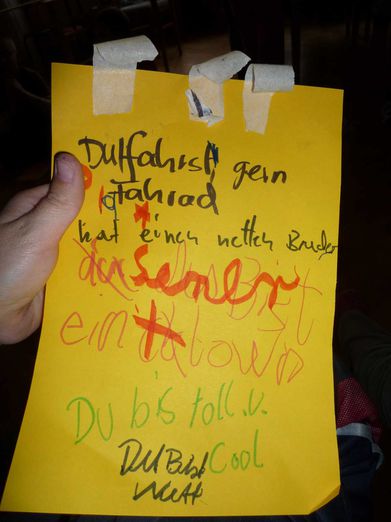 Du fährst gern
Fahrad
hat einen netten Bruder
du bist
ein clown
DU bis toll.u.
DU Bist Cool
nett